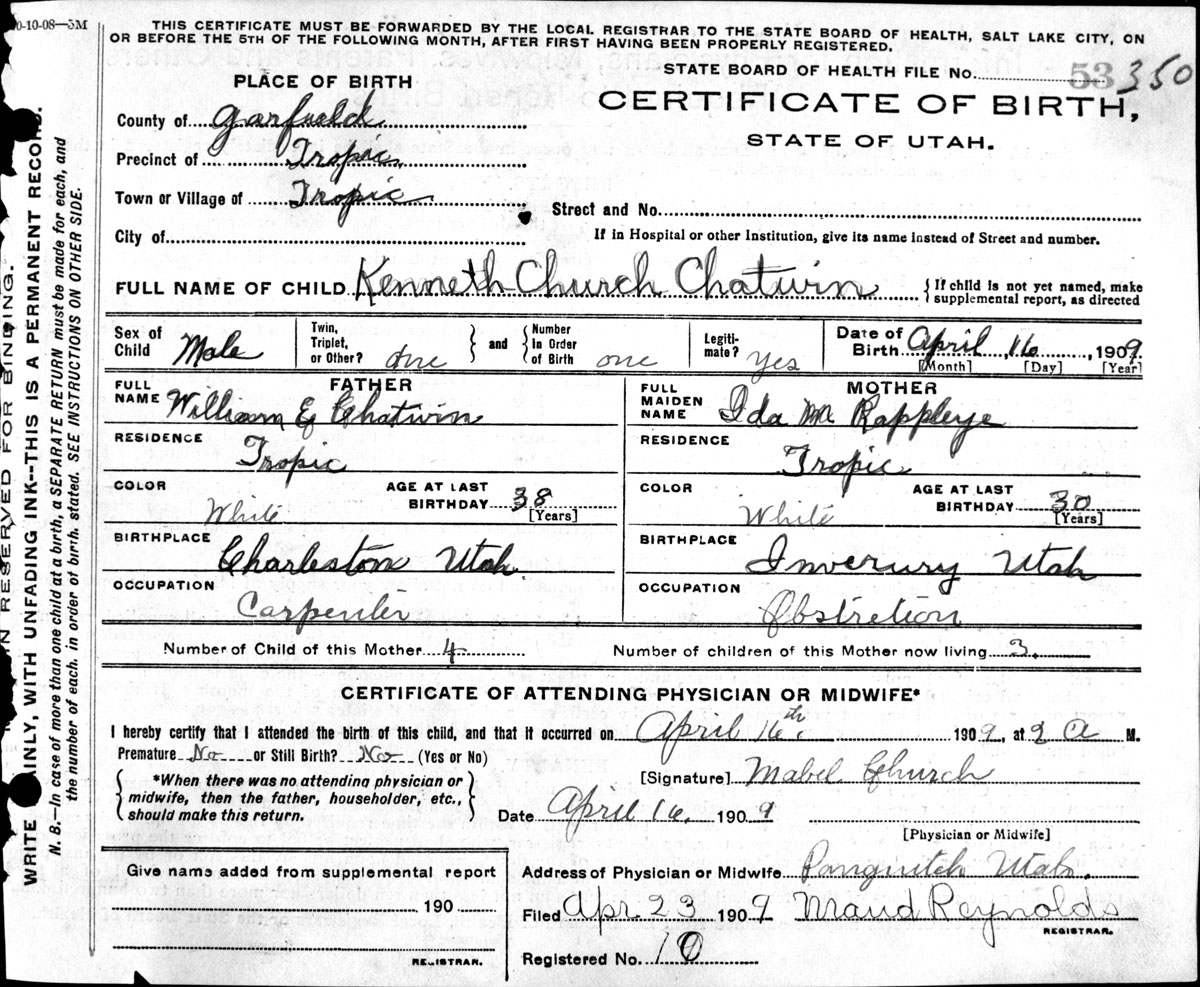 0-10-08—5M
THIS CERTIFICATE MUST BE FORWARDED BY THE LOCAL REGISTRAR TO THE STATE BOARD OF HEALTH, SALT LAKE CITY, ON
OR BEFORE THE 5TH OF THE FOLLOWING MONTH, AFTER FIRST HAVING BEEN PROPERLY REGISTERED.
STATE BOARD OF HEALTH FILE NO. 53 350
PLACE OF BIRTH
CERTIFICATE OF BIRTH,
STATE OF UTAH.
County of Garfield
Precinct of Tropic
Town or Village of Tropic
Street and No.
City of
If in Hospital or other Institution, give its name instead of Street and number.
FULL NAME OF CHILD Kenneth Church Chatwin
If child is not yet named, make
supplemental report, as directed
Sex of Child Male
Twin, Triplet, or Other? one
and
Number In Order of Birth one
Legiti-mate? yes
Date of Birth April, 16, 1909.
[Month] [Day] [Year]
FATHER
FULL NAME William E Chatwin
MOTHER
FULL MAIDEN NAME Ida M Rappleye
RESIDENCE Tropic
RESIDENCE Tropic
COLOR White
AGE AT LAST BIRTHDAY 38 [Years]
COLOR White
AGE AT LAST BIRTHDAY 30 [Years]
BIRTHPLACE Charleston Utah.
BIRTHPLACE Inverury Utah
OCCUPATION Carpenter
OCCUPATION Obstretion
Number of Child of this Mother 4
Number of children of this Mother now living 3.
CERTIFICATE OF ATTENDING PHYSICIAN OR MIDWIFE*
I hereby certify that I attended the birth of this child, and that it occurred on April 16th. 1909, at 2 A M.
Premature No or Still Birth? No (Yes or No)
*When there was no attending physician or
midwife, then the father, householder, etc.,
should make this return.
[Signature] Mabel Church
Date April 16, 1909
[Physician or Midwife]
Give name added from supplemental report
190
REGISTRAR.
Address of Physician or Midwife Panguitch Utah.
Filed Apr. 23 1909 Maud Reynolds
REGISTRAR.
Registered No. 10
IN RESERVED FOR BINDING.
WRITE AINLY, WITH UNFADING INK--THIS IS A PERMANENT RECORD.
N. B.—In case of more than one child at a birth, a SEPARATE RETURN must be made for each, and
the number of each, in order of birth, stated. SEE INSTRUCTIONS ON OTHER SIDE.